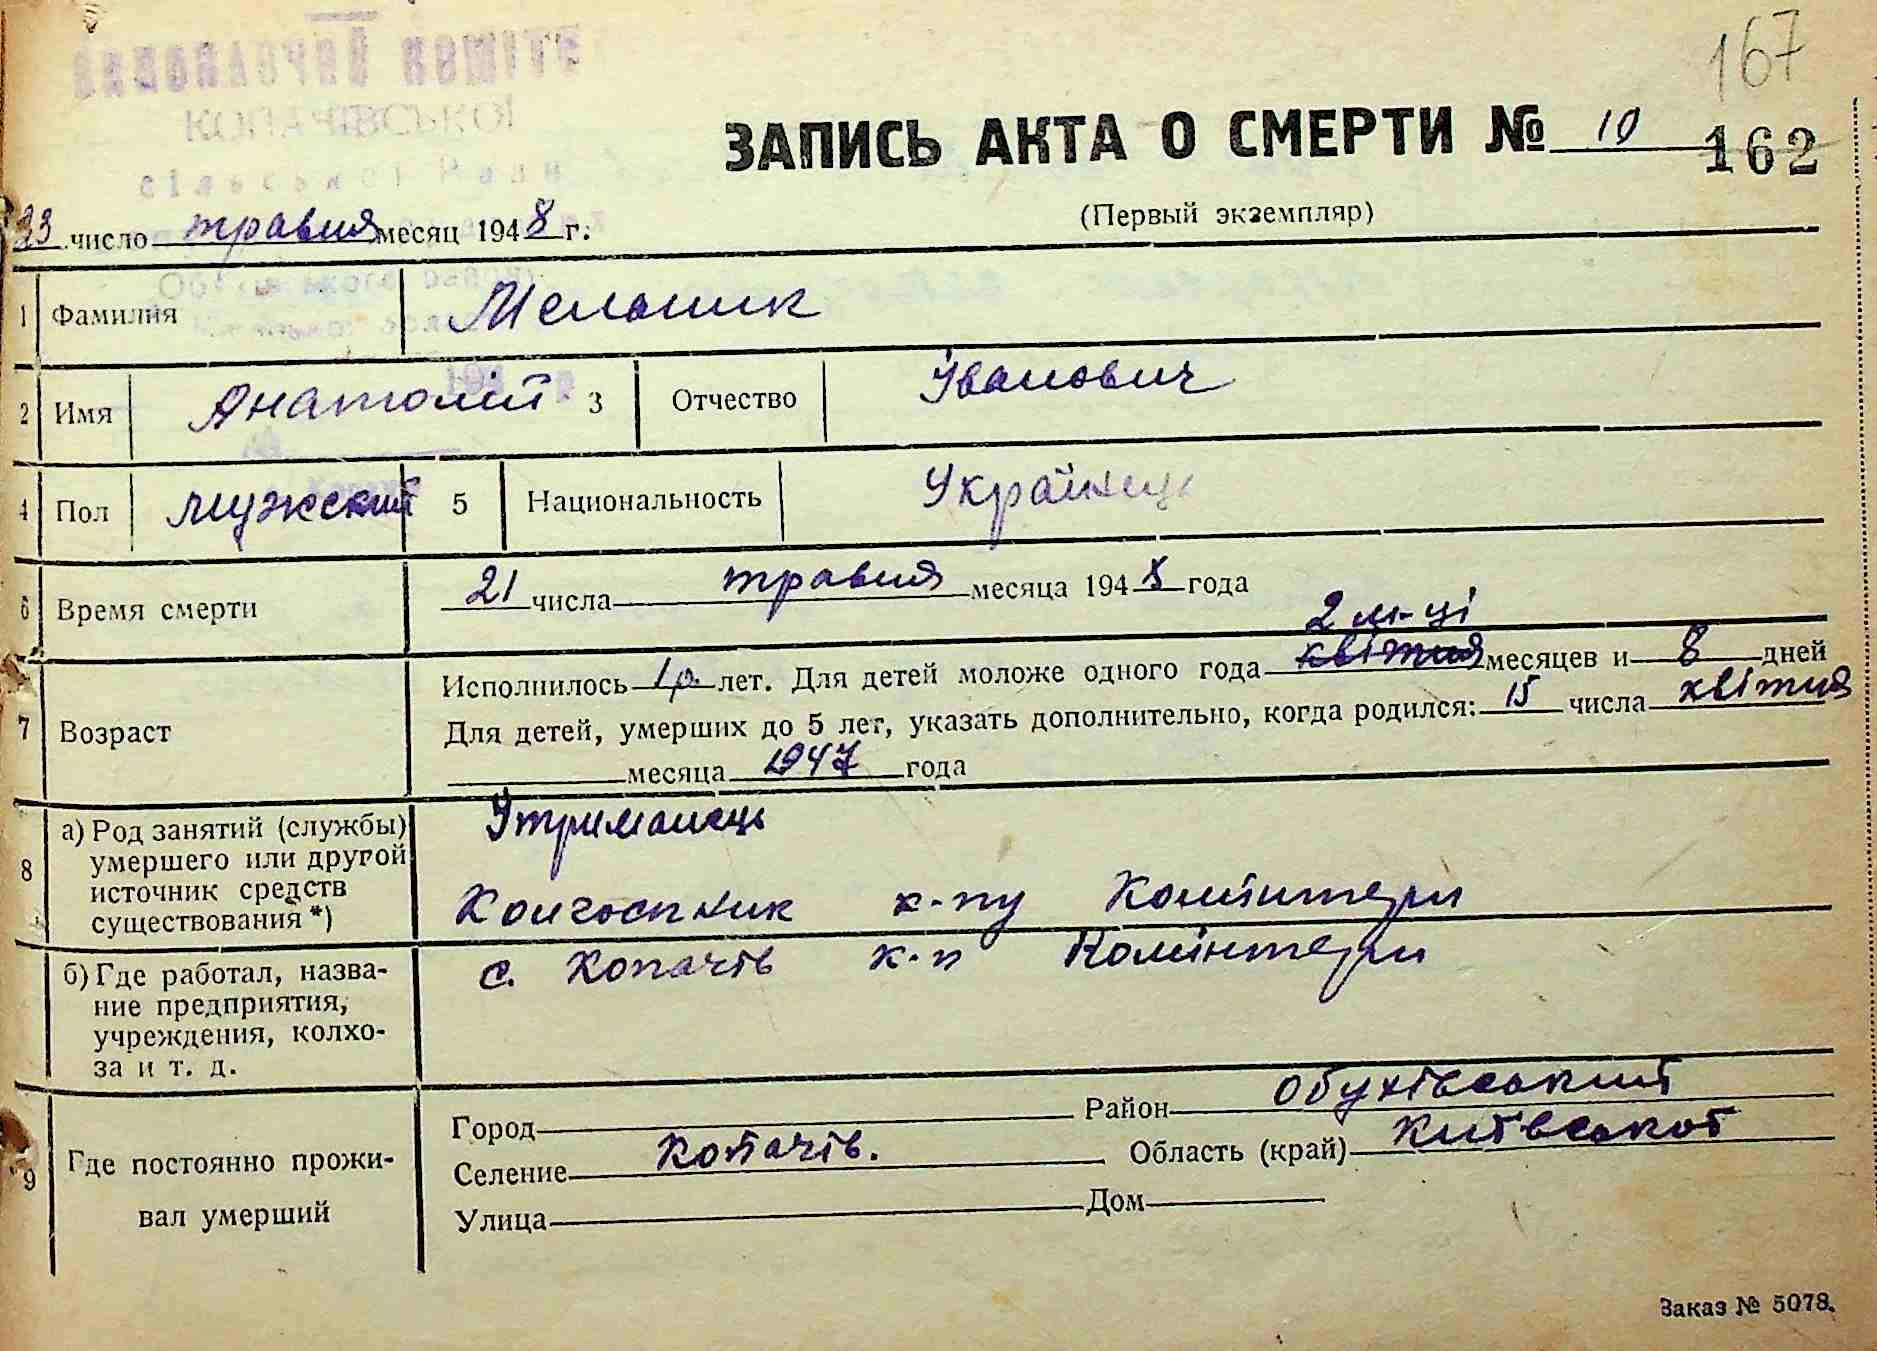 167
КОПАЧІВСЬКОЇ
сільської Ради
ЗАПИСЬ АКТА О СМЕРТИ № 10
162
(Первый экземпляр)
23 число травня месяц 1948 г.
1 Фамилия Мельник
2 Имя Анатолій 3 Отчество Іванович
4 Пол мужский 5 Национальность Українець
6 Время смерти 21 числа травня месяца 1948 года
2 м-ці
Исполнилось 1р. лет. Для детей моложе одного года квітня месяцев и 8 дней
7 Возраст Для детей, умерших до 5 лет, указать дополнительно, когда родился: 15 числа квітня
месяца 1947 года
8 а) Род занятий (службы) умершего или другой источник средств существования *) Утриманець
Колгоспник к-пу Комінтерн
б) Где работал, назва-
ние предприятия,
учреждения, колхо-
за и т. д.
с. Копачів к-п Комінтерн
9 Где постоянно прожи-
вал умерший
Город Район Обухівський
Селение Копачів. Область (край) Київської
Улица Дом
Заказ № 5078.